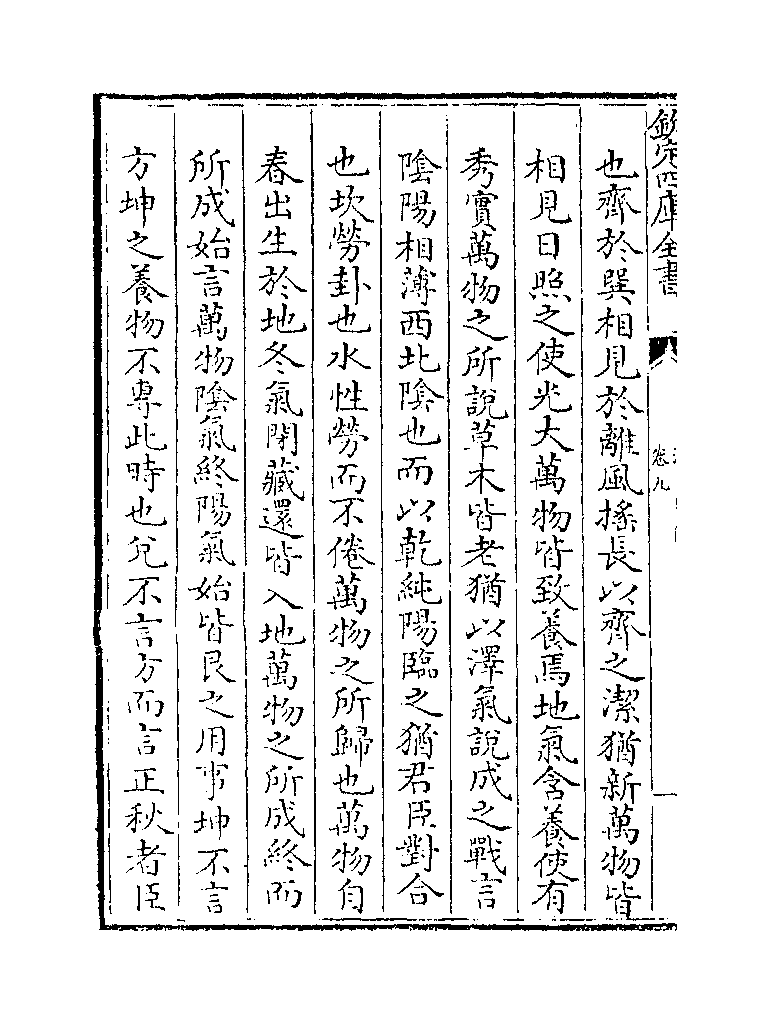 欽定四庫全書
卷九
也齊於巽相見於離風揺長以齊之潔猶新萬物皆
相見日照之使光大萬物皆致養焉地氣含養使有
秀實萬物之所說草木皆老猶以澤氣說成之戰言
陰陽相薄西北陰也而以乾純陽臨之猶君臣對合
也坎勞卦也水性勞而不倦萬物之所歸也萬物自
春出生於地冬氣閉藏還皆入地萬物之所成終而
所成始言萬物陰氣終陽氣始皆艮之用事坤不言
方坤之養物不專此時也兌不言方而言正秋者臣